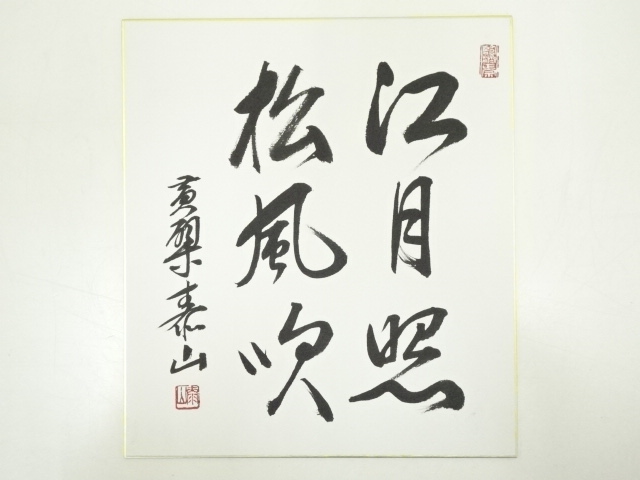 江月照
松風吹
黄檗泰山